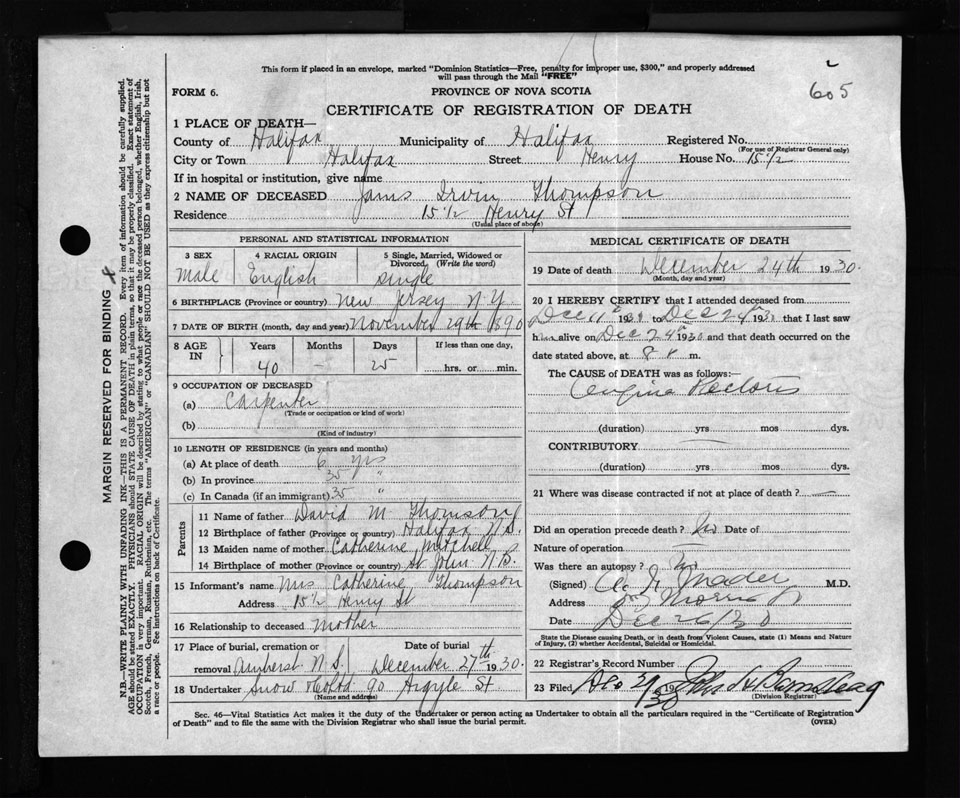 This form if placed in an envelope, marked "Dominion Statistics—Free, penalty for improper use, $300," and properly addressed
will pass through the Mail "FREE"
605
FORM 6.
PROVINCE OF NOVA SCOTIA
CERTIFICATE OF REGISTRATION OF DEATH
1 PLACE OF DEATH—
County of Halifax Municipality of Halifax Registered No.
(For use of Registrar General only)
City or Town Halifax Street Henry House No. 15½
If in hospital or institution, give name
2 NAME OF DECEASED Jams Irvin Thompson
Residence 15½ Henry St
(Usual place of abode)
PERSONAL AND STATISTICAL INFORMATION
3 SEX 4 RACIAL ORIGIN 5 Single, Married, Widowed or
Divorced. (Write the word)
Male English Single
6 BIRTHPLACE (Province or country) New Jersey N.Y.
7 DATE OF BIRTH (month, day and year) November 29th 1890
8 AGE IN Years Months Days If less than one day,
40 — 25 hrs. or min.
9 OCCUPATION OF DECEASED
(a) Carpenter
(Trade or occupation or kind of work)
(b)
(Kind of industry)
10 LENGTH OF RESIDENCE (in years and months)
(a) At place of death 6 yrs
(b) In province 35 "
(c) In Canada (if an immigrant) 35 "
Parents
11 Name of father David M Thomson
12 Birthplace of father (Province or country) Halifax N.S.
13 Maiden name of mother Catherine Mitchell
14 Birthplace of mother (Province or country) St John N.B.
15 Informant's name Mrs Catherine Thompson
Address 15½ Henry St
16 Relationship to deceased Mother
17 Place of burial, cremation or Date of burial
removal Amherst N.S. December 27th 1930.
18 Undertaker Snow & Co Ltd 90 Argyle St
(Name and address)
MEDICAL CERTIFICATE OF DEATH
19 Date of death December 24th 1930.
(Month, day and year)
20 I HEREBY CERTIFY that I attended deceased from
Dec 11th 1930 to Dec 24th 1930 that I last saw
him alive on Dec 24th 1930 and that death occurred on the
date stated above, at 8 m.
The CAUSE of DEATH was as follows:—
Angina Pectoris
(duration) yrs mos dys.
CONTRIBUTORY
(duration) yrs. mos. dys.
21 Where was disease contracted if not at place of death? —
Did an operation precede death? No Date of
Nature of operation
Was there an autopsy? No
(Signed) Mader M.D.
Address Morris
Date Dec 26/30
State the Disease causing Death, or in death from Violent Causes, state (1) Means and Nature
of Injury, (2) whether Accidental, Suicidal or Homicidal.
22 Registrar's Record Number
23 Filed Dec 1930 John
(Division Registrar)
Sec. 46—Vital Statistics Act makes it the duty of the Undertaker or person acting as Undertaker to obtain all the particulars required in the "Certificate of Registration
of Death" and to file the same with the Division Registrar who shall issue the burial permit. (OVER)
MARGIN RESERVED FOR BINDING
N.B.—WRITE PLAINLY WITH UNFADING INK—THIS IS A PERMANENT RECORD. Every item of information should be carefully supplied.
AGE should be stated EXACTLY. PHYSICIANS should STATE CAUSE OF DEATH in plain terms, so that it may be properly classified. Exact statement of
OCCUPATION is very important. RACIAL ORIGIN will be described by stating to what people or race the deceased person belonged, whether English, Irish,
Scotch, French, German, Russian, Ruthenian, etc. The terms "AMERICAN" or "CANADIAN" SHOULD NOT BE USED as they express citizenship but not
a race or people. See instructions on back of Certificate.